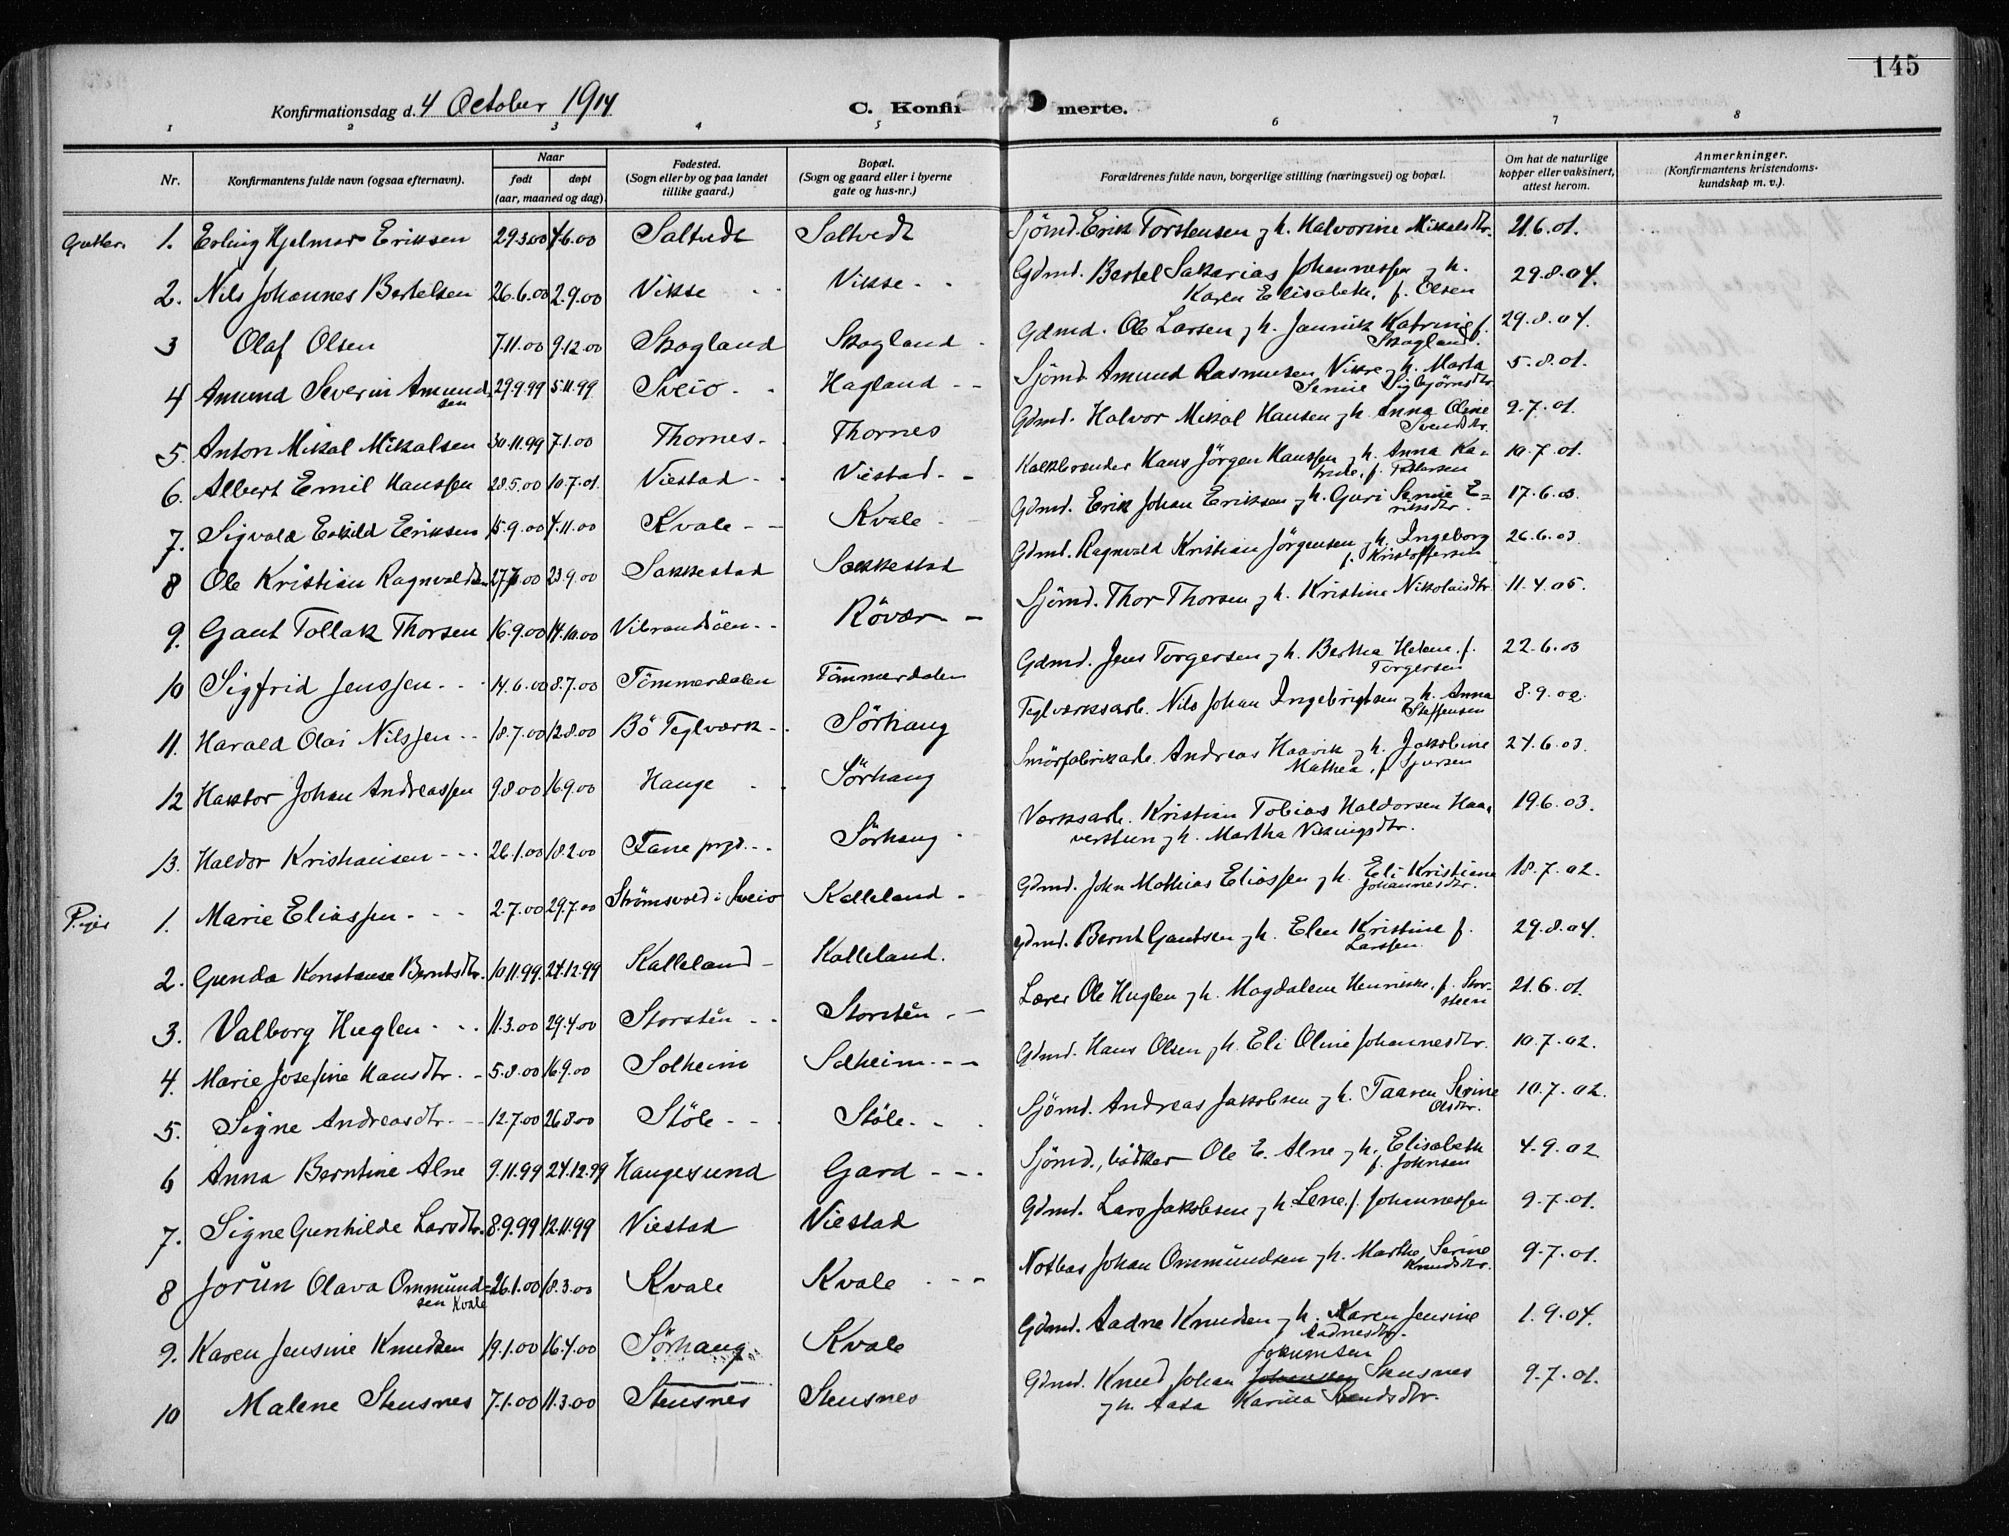 145
Konfirmationsdag d. 4 October 1914
C. Konfir merte.
1 2 3 4 5 6 7 8
Nr. Konfirmantens fulde navn (ogsaa efternavn). Naar født døpt (aar, maaned og dag) Fødested. (Sogn eller by og paa landet tillike gaard.) Bopæl. (Sogn og gaard eller i byerne gate og hus-nr.) Forældrenes fulde navn, borgerlige stilling (næringsvei) og bopæl. Om hat de naturlige kopper eller vaksinert, attest herom. Anmerkninger. (Konfirmantens kristendoms-kundskap m. v.).
Gutter. 1. Erling Hjelmar Eriksen 29.3.00 4.6.00 Saltvedt Saltvedt Sjömd. Erik Torstensen g h. Halvorine Mikalsdtr. 21.6.01.
2. Nils Johannes Bertelsen 26.6.00 2.9.00 Vikse Vikse Gdmd. Bertel Sakarias Johannessen g h. Karen Elisabeth, f. Olsen 29.8.04.
3 Olaf Olsen 7.11.00 9.12.00 Skogland Skogland Gdmd. Ole Larsen g h. Jannik Katrine f. Skogland 29.8.04.
4 Amund Severin Amundsen 29.9.99 5.11.99 Sveio Hagland Sjömd. Amund Rasmusen Vikse g h. Marta Serine Sigbjörnsdtr 5.8.01.
5. Anton Mikal Mikalsen 30.11.99 7.1.00 Thornes Thornes Gdmd. Halvor Mikal Hansen g h. Anna Oline Svendsdtr. 9.7.01.
6. Albert Emil Hanssen 28.5.00 10.7.01. Viestad Viestad Kalkbrender Hans Jörgen Hanssen g h. Anna Katrine, f. Pedersen 10.7.01.
7. Sigvald Eskild Eriksen 15.9.00 4.11.00 Kvale Kvale Gdmd. Erik Johan Eriksen g h. Guri Serine Eriksdtr. 17.6.03.
8 Ole Kristian Ragnvaldsen 27.7.00 23.9.00 Sakkestad Sakkestad Gdmd. Ragnvald Kristian Jörgensen g h. Ingeborg f. Kristoffersen 26.6.03.
9. Gaut Tollak Thorsen 16.9.00 14.10.00 Vibrandsöen Rövær Sjömd. Thor Thorsen g h. Kristine Nikolaisdtr. 11.4.05.
10 Sigfrid Jenssen 14.6.00 8.7.00 Tömmerdalen Tömmerdalen Gdmd. Jens Torgersen g h. Bertha Helene, f. Torgersen 22.6.03
11. Harald Olai Nilssen 18.7.00 12.8.00 Bö Teglværk Sörhaug Teglverksarb. Nils Johan Ingebrigtsen g h. Anna Steffensen 8.9.02.
12 Haktor Johan Andreassen 9.8.00 16.9.00 Hauge Sörhaug Smörfabrikarb. Andreas Haavik g h. Jakobine Mathea, f. Sjursen 24.6.03.
13. Haldor Kristiansen 26.1.00 18.2.00 Fane prgd. Sörhaug Værksarb. Kristian Tobias Haldorsen Haaverstun g h. Martha Vikingsdtr. 19.6.03.
Piger 1. Marie Eliassen 2.7.00 29.7.00 Strömsvold i Sveio Kalleland Gdmd. John Mathias Eliassen g h. Eli Kristiane Johannesdtr. 18.7.02.
2. Gunda Konstanse Berntsdtr. 10.11.99. 24.12.99 Kalleland Kalleland. Gdmd. Bernt Gautsen g h. Elen Kristine f. Larssen 29.8.04.
3. Valborg Huglen 11.3.00 29.4.00 Storstên Storstên Lærer Ole Huglen g h. Magdalene Henrikke, f. Storsteen 21.6.01.
4. Marie Josefine Hansdtr. 5.8.00 16.9.00 Solheim Solheim Gdmd. Hans Olsen g h. Eli Oline Johannesdtr. 10.7.02.
5. Signe Andreasdtr. 12.7.00 26.8.00 Stöle Stöle Sjömd. Andreas Jakobsen g h. Taaren Serine Olsdtr. 10.7.02.
6 Anna Berntine Alne 9.11.99 24.12.99 Haugesund Gard Sjömd., bödker Ole E. Alne g h. Elisabeth f. Johnsen 4.9.02
7. Signe Gunhilde Larsdtr. 8.9.99 12.11.99 Viestad Viestad Gdmd. Lars Jakobsen g h. Lene, f. Johannessen 9.7.01.
8 Jorün Olava Ommündsen Kvale 26.1.00 18.3.00 Kvale Kvale Notbas Johan Ommündsen g h. Marthe Serine Knudsdtr. 9.7.01.
9. Karen Jensine Knudsen 19.1.00 16.4.00 Sörhaug Kvale Gdmd. Aadne Knudsen g h. Karen Jensine Aadnesdtr. 1.9.04.
10 Malene Stensnes 7.1.00 11.3.00 Stensnes Stensnes Gdmd. Knud Johan Johansen Jokumsen Stensnes g h. Aasa Karina Svendsdtr. 9.7.01.